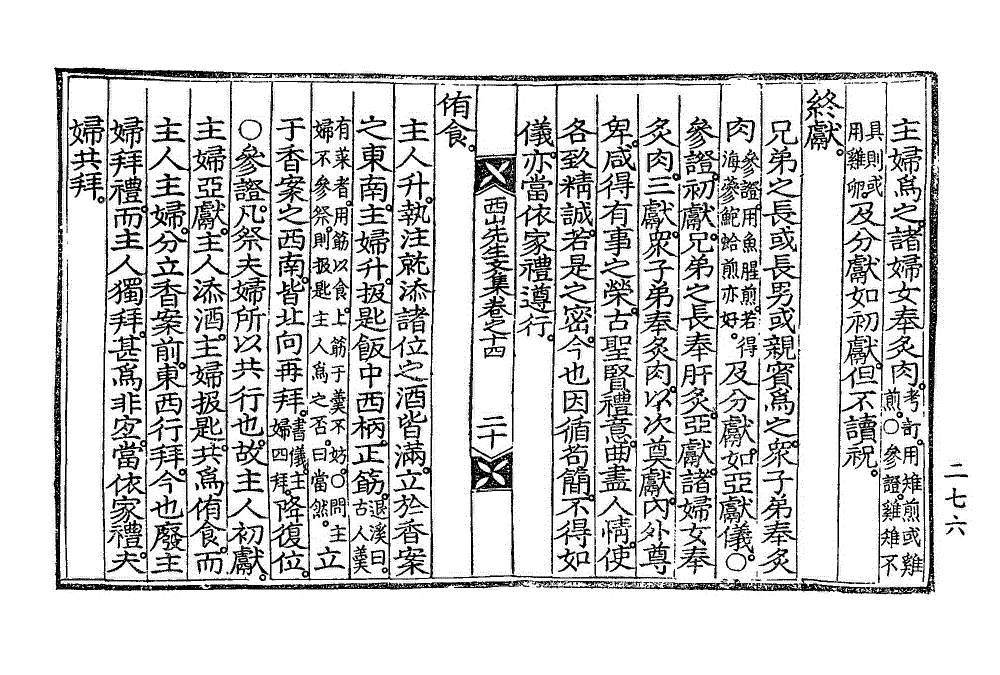 主婦爲之。諸婦女奉炙肉。考訂。用雉煎或雞煎。○參證。雞雉不
具則或用雞卵。及分獻如初獻。但不讀祝。
終獻。
兄弟之長或長男或親賓爲之。衆子弟奉炙
肉。參證。用魚腥煎。若得海蔘鰒蛤煎亦好。及分獻如亞獻儀。○
參證。初獻。兄弟之長奉肝炙。亞獻。諸婦女奉
炙肉。三獻。衆子弟奉炙肉。以次尊獻。內外尊
卑。咸得有事之榮。古聖賢禮意。曲盡人情。使
各致精誠。若是之密。今也因循苟簡。不得如
儀。亦當依家禮遵行。
西山先生文集卷之十四
二十
侑食。
主人升。執注就添諸位之酒皆滿。立於香案
之東南。主婦升。扱匙飯中西柄。正筯。退溪曰。古人羹
有菜者。用筯以食。上筯于羹不妨。○問。主婦不參祭。則扱匙主人爲之否。曰當然。立
于香案之西南。皆北向再拜。書儀。主婦四拜。降復位。
○參證。凡祭夫婦所以共行也。故主人初獻。
主婦亞獻。主人添酒。主婦扱匙。共爲侑食。而
主人主婦。分立香案前。東西行拜。今也廢主
婦拜禮。而主人獨拜。甚爲非宜。當依家禮。夫
婦共拜。
二七六